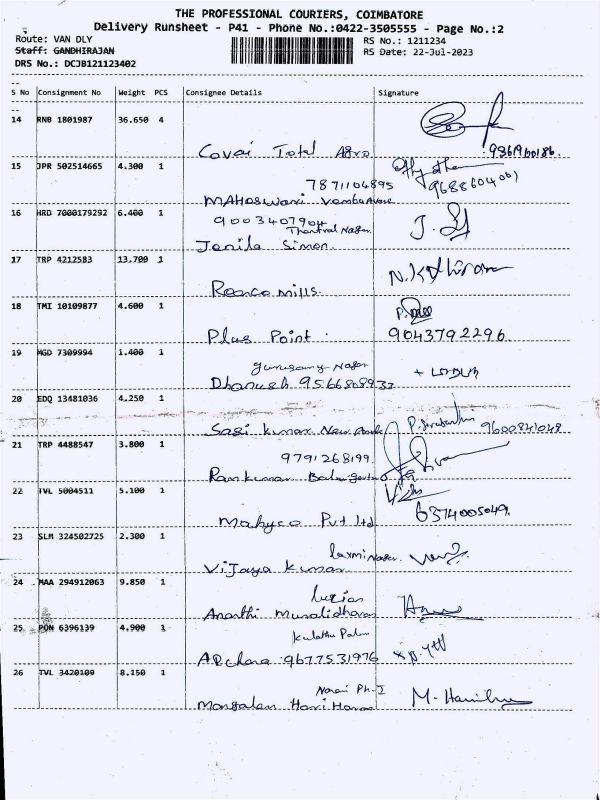 THE PROFESSIONAL COURIERS, COIMBATORE
Delivery Runsheet - P41 - Phone No.:0422-3505555 - Page No.:2
Route: VAN DLY
RS No.: 1211234
Staff: GANDHIRAJAN
RS Date: 22-Jul-2023
DRS No.: DCJB121123402
S No Consignment No Weight PCS Consignee Details Signature
14 RNB 1801987 36.650 4
Covai Total Agro
15 JPR 502514665 4.300 1
7871104895
16 HRD 7000179292 6.400 1
9003407904
Jenila Simon
17 TRP 4212583 13.700 1
Roanco mills.
18 TMI 10109877 4.600 1
Plus Point.
9043792296
19 MGD 7309994 1.400 1
Dhanush 9566808933
20 EDQ 13481036 4.250 1
Sasi kumar New
9600841048
21 TRP 4488547 3.800 1
9791268199
Ramkumar
22 TVL 5004511 5.100 1
Mahyco Pvt ltd
6374005049
23 SLM 324502725 2.300 1
laxmi Nagar.
Vijaya Kumar
24 MAA 294912063 9.850 1
Ananthi Muralidharan
25 PON 6396139 4.900 1
9677531976
26 TVL 3420109 8.150 1
Ph-I
Hari Haran